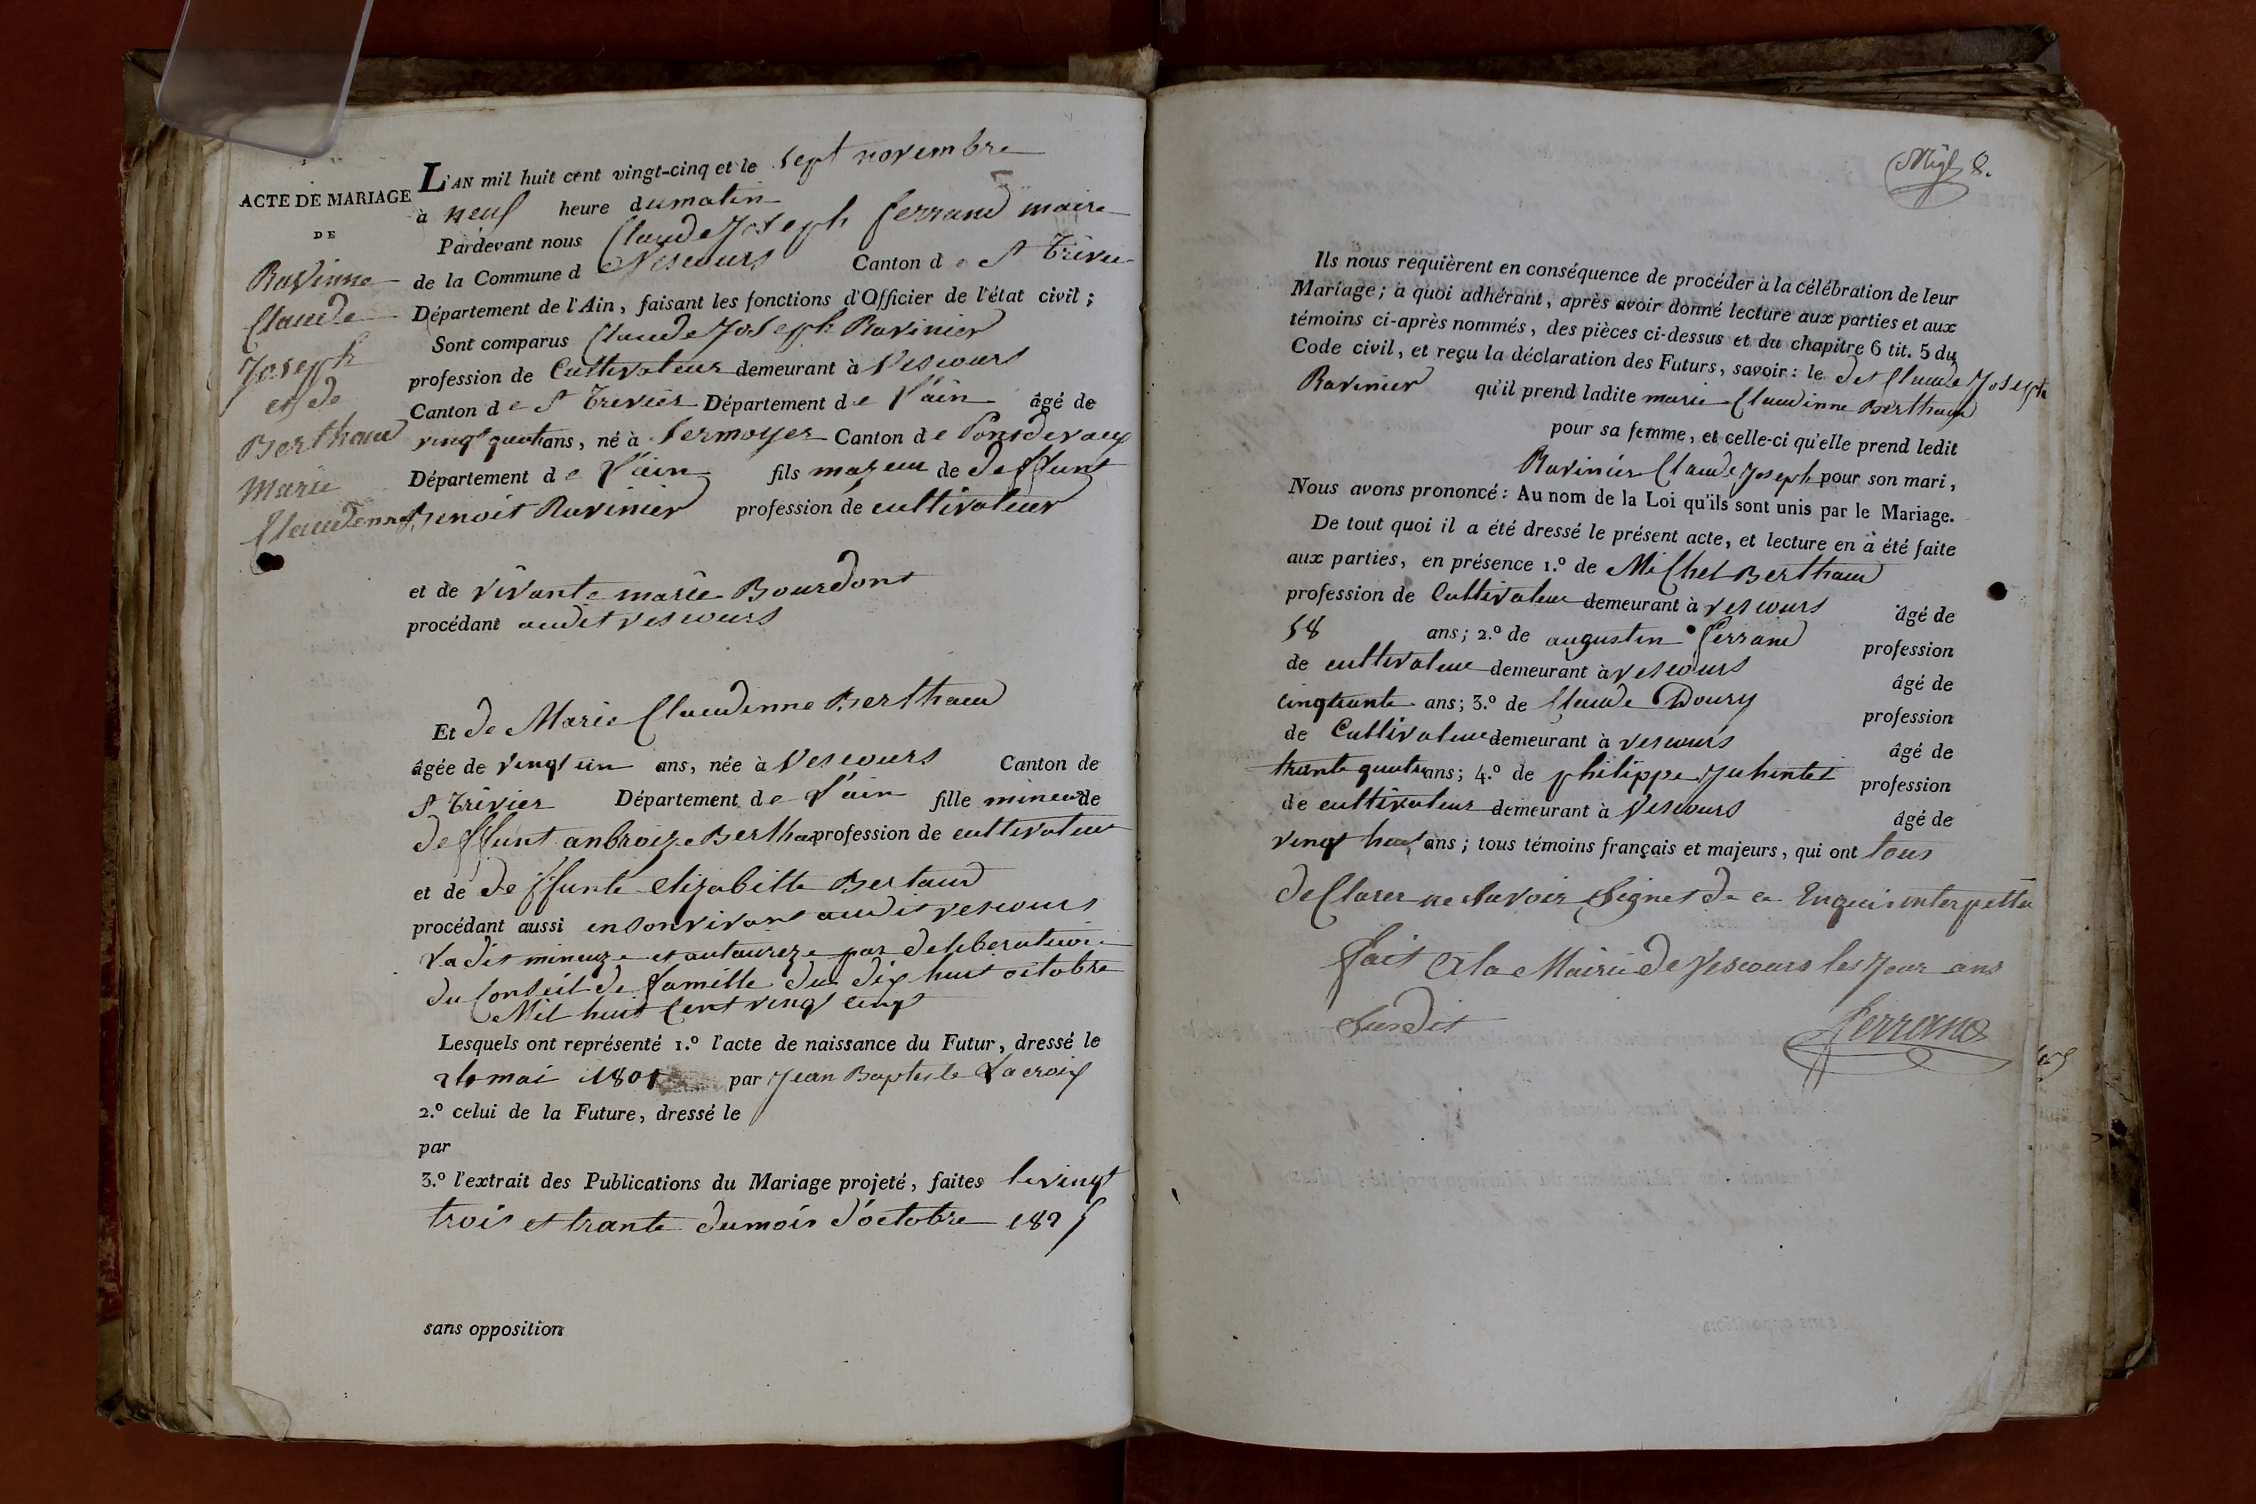 ACTE DE MARIAGE
DE
Ravinne
Claude
Joseph
et de
Berthaud
Marie
Claudenne
L'AN mil huit cent vingt-cinq et le sept novembre
à neuf heure du matin
Pardevant nous Claude Joseph ferrand maire
de la Commune de Vescours Canton de St Trivie
Département de l'Ain, faisant les fonctions d'Officier de l'état civil ;
Sont comparus Claude Joseph Ravinier
profession de Cultivateur demeurant à Vescours
Canton de St Trevier Département de l'ain âgé de
vingt quatre ans, né à Sermoyer Canton de Ponsdevaux
Département de l'ain fils mazeur de deffunt
Benoit Ravinier profession de cultivateur
et de vivante marie Bourdont
procédant audit vescours
Et de Marie Claudinne Berthaud
âgée de vingt un ans, née à Vescours Canton de
St Trivier Département de l'ain fille mineur de
deffunt anbroize Berthaud profession de cultivateur
et de deffunte elizabitte Bertaud
procédant aussi en son vivant audit vescours
la dit mineuze et autaurize par deliberation
du Conseil de famille du dix huit octobre
Mil huit Cent vingt cinq
Lesquels ont représenté 1.º l'acte de naissance du Futur, dressé le
mai 1801 par Jean Baptiste Lacroix
2.º celui de la Future, dressé le
par
3.º l'extrait des Publications du Mariage projeté, faites le vingt
trois et trante du mois d'octobre 1825
sans opposition
8.
Ils nous requièrent en conséquence de procéder à la célébration de leur
Mariage ; a quoi adhérant, après avoir donné lecture aux parties et aux
témoins ci-après nommés, des pièces ci-dessus et du chapitre 6 tit. 5 du
Code civil, et reçu la déclaration des Futurs, savoir : le dit Claude Joseph
Ravinier qu'il prend ladite marie Claudinne Berthaud
pour sa femme, et celle-ci qu'elle prend ledit
Ravinier Claude Joseph pour son mari,
Nous avons prononcé : Au nom de la Loi qu'ils sont unis par le Mariage.
De tout quoi il a été dressé le présent acte, et lecture en a été faite
aux parties, en présence 1.º de Michel Berthaud
profession de Cultivateur demeurant à vescours âgé de
58 ans ; 2.º de augustin ferrand profession
de cultivateur demeurant à vescours âgé de
cinqtante ans ; 3.º de Claude Doury profession
de Cultivateur demeurant à vescours âgé de
trante quatre ans ; 4.º de philippe profession
de cultivateur demeurant à Vescours âgé de
vingt huit ans ; tous témoins français et majeurs, qui ont tous
declarer ne savoir Signer de ce Enquis
fait a la Mairie de Vescours les Jour ans
Susdit
Ferrand